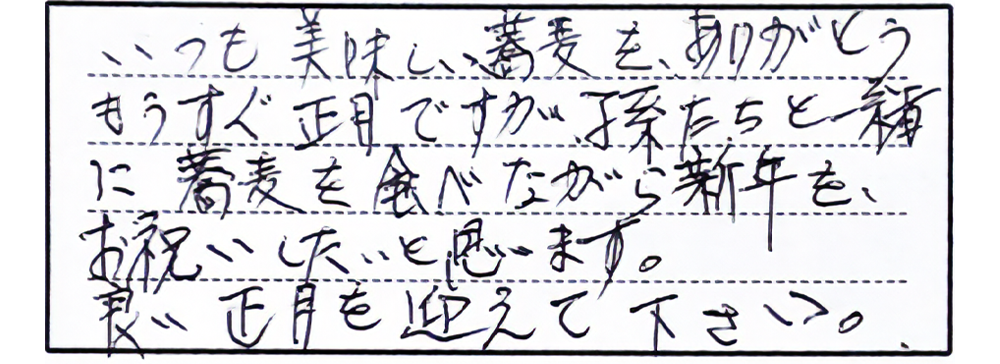 いつも美味しい蕎麦を、ありがとう
もうすぐ正月ですが、孫たちと一緒
に蕎麦を食べながら新年を、
お祝いしたいと思います。
良い正月を迎えて下さい。